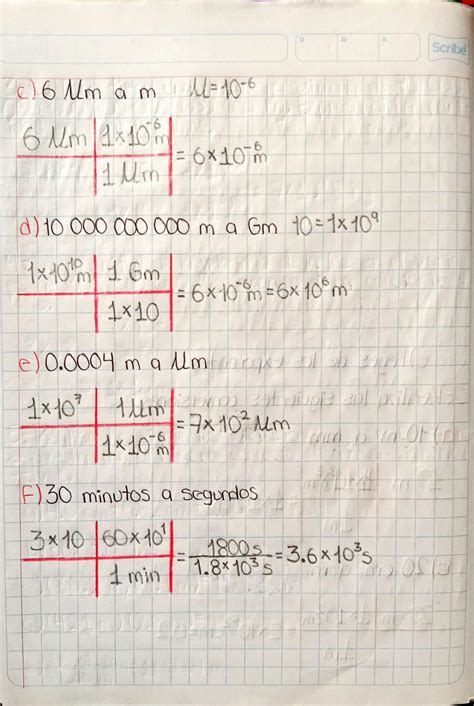 D M A
Scribe
c) 6 Mm a m M=10^-6
6 Mm | 1×10^-6 m
1 Mm = 6×10^-6 m
d) 10 000 000 000 m a Gm 10=1×10^9
1×10^10 m | 1 Gm
1×10 = 6×10^-6 m = 6×10^6 m
e) 0.0004 m a Mm
1×10^7 | 1 Mm
1×10^-6 m = 7×10^2 Mm
F) 30 minutos a segundos
3×10 | 60×10^1
1 min = 1800 s / 1.8×10^3 s = 3.6×10^3 s